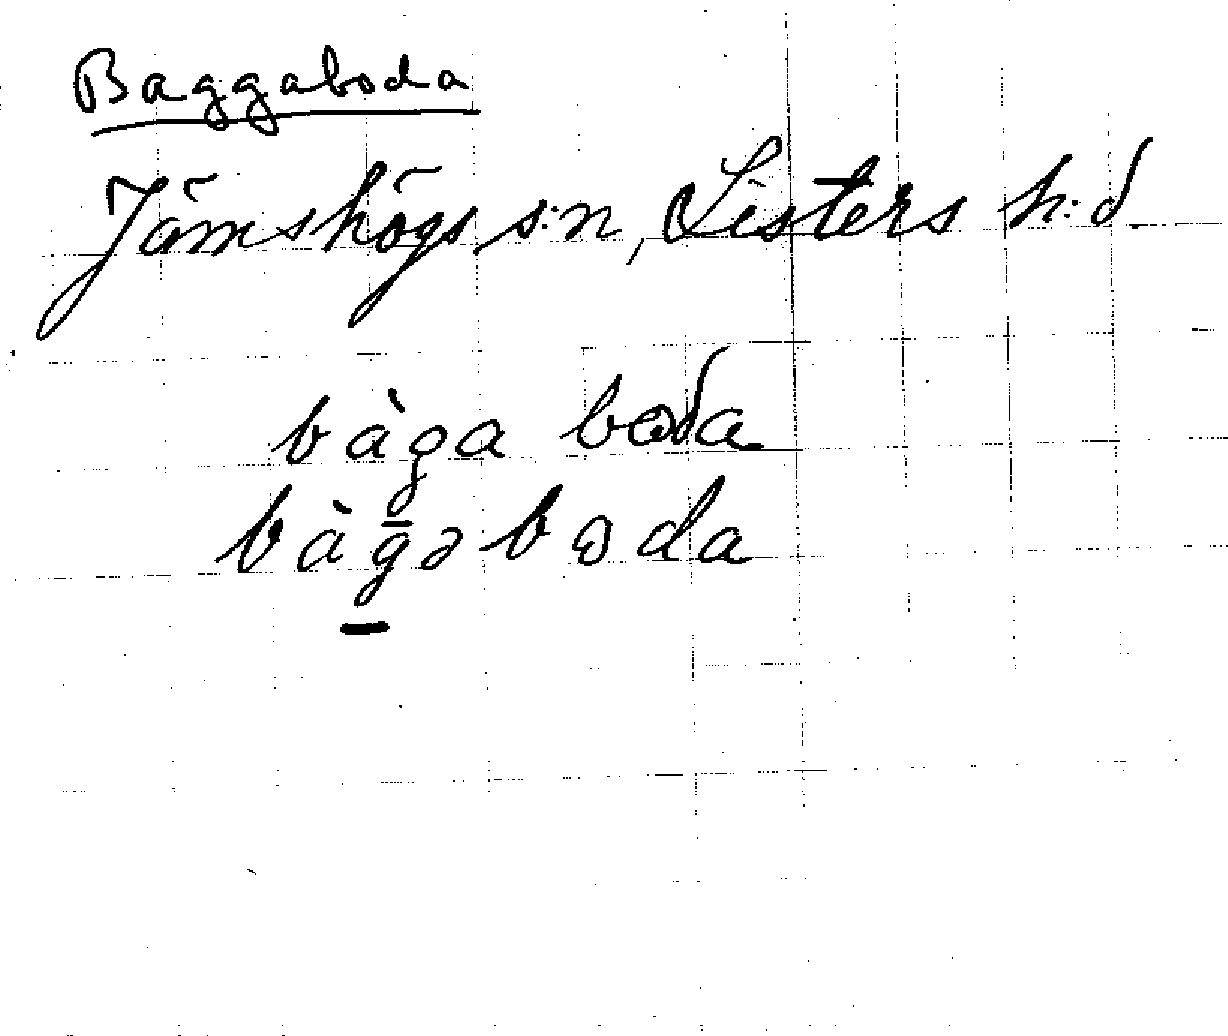 Baggaboda
Jämshögs s:n, Listers h:d
bàga bωda
bàḡəbωda